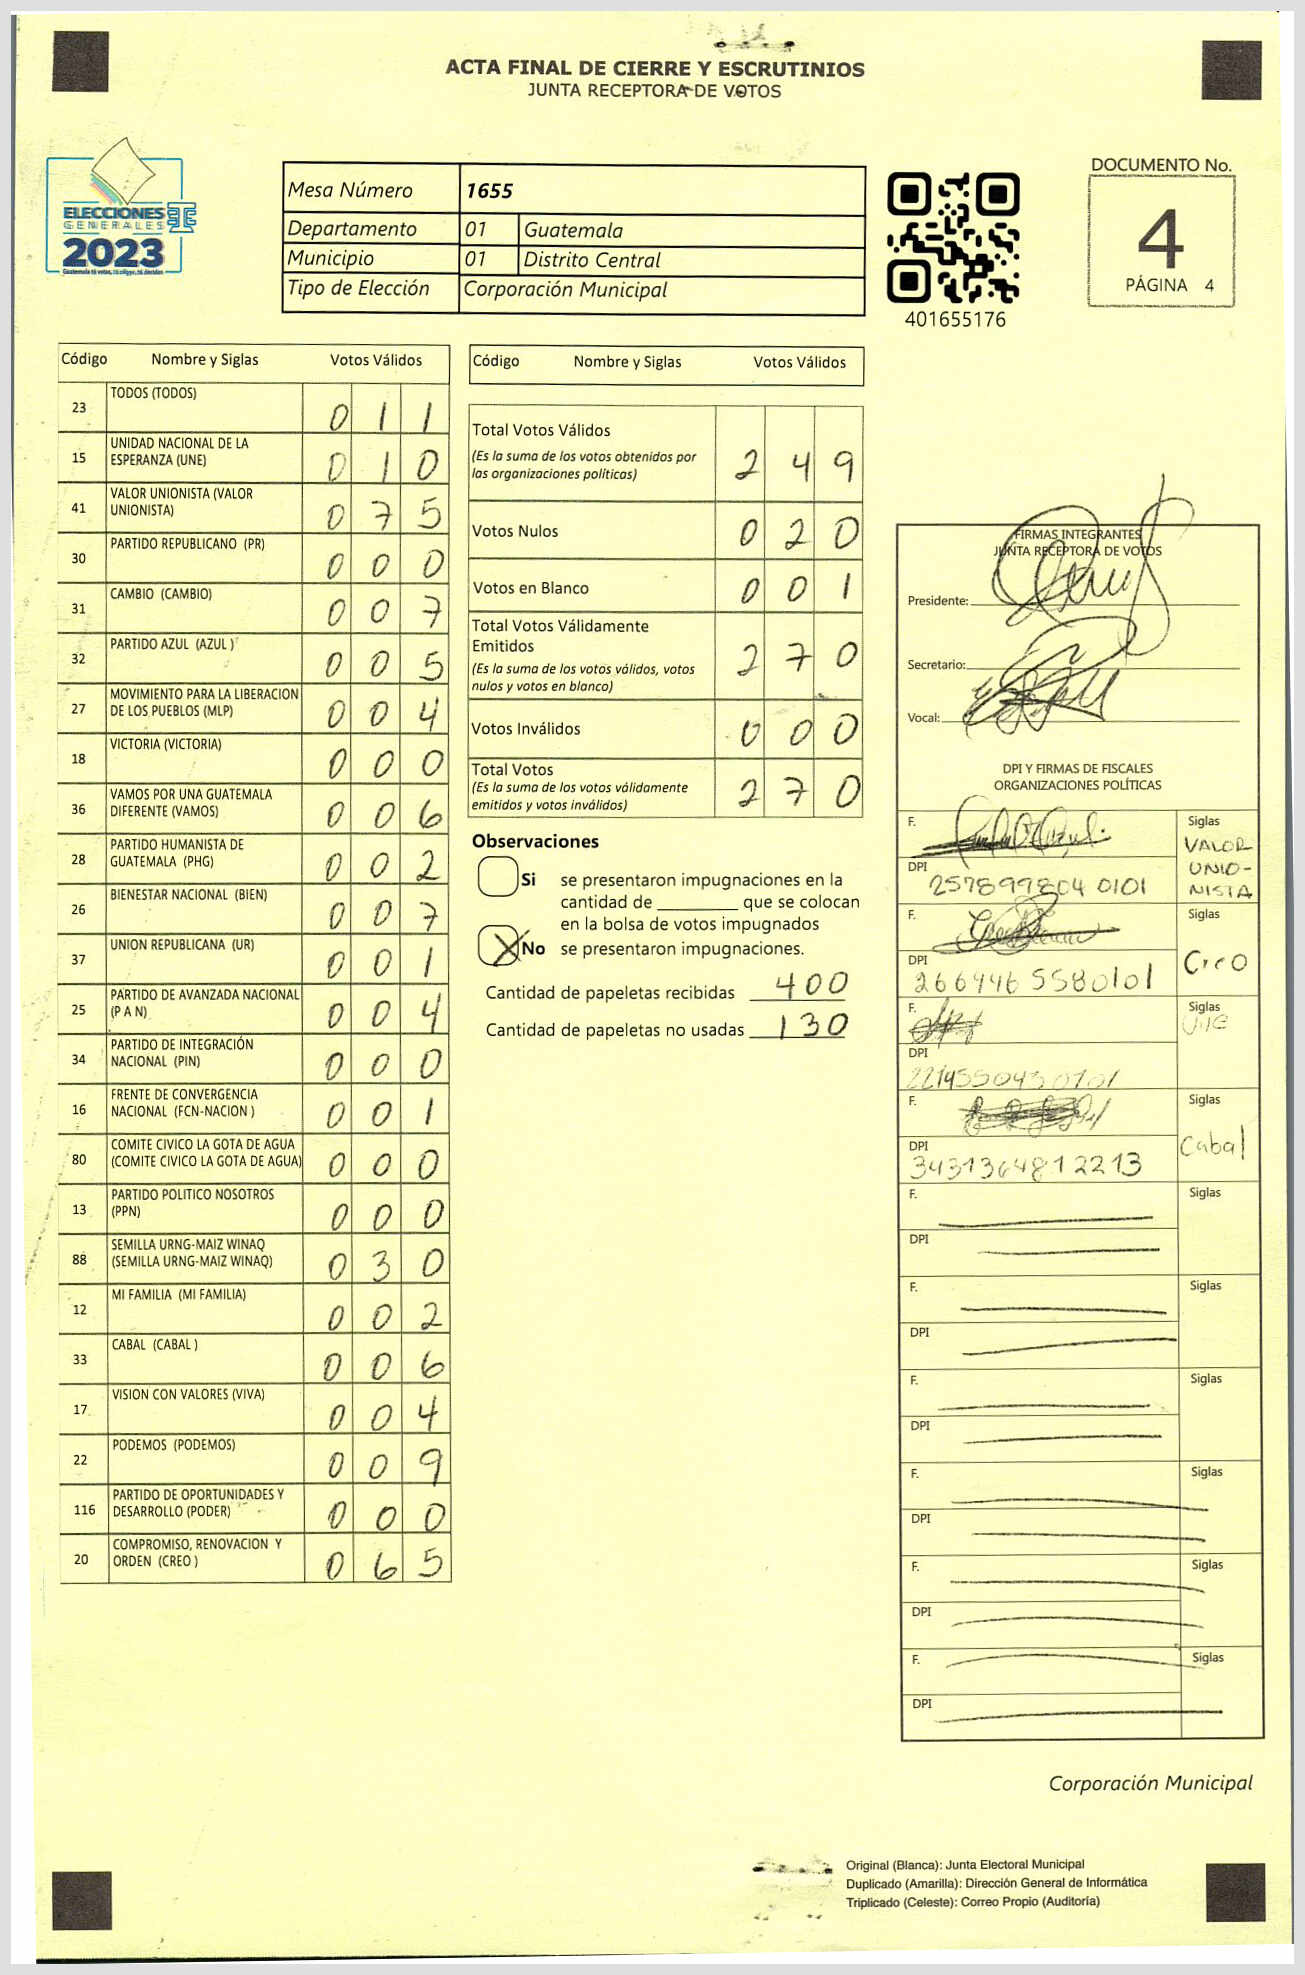 ACTA FINAL DE CIERRE Y ESCRUTINIOS
JUNTA RECEPTORA DE VOTOS
ELECCIONES
GENERALES
2023
Guatemala tú votas, tú eliges, tú decides
Mesa Número 1655
Departamento 01 Guatemala
Municipio 01 Distrito Central
Tipo de Elección Corporación Municipal
401655176
DOCUMENTO No.
4
PÁGINA 4
Código Nombre y Siglas Votos Válidos
23 TODOS (TODOS) 0 1 1
15 UNIDAD NACIONAL DE LA ESPERANZA (UNE) 0 1 0
41 VALOR UNIONISTA (VALOR UNIONISTA) 0 7 5
30 PARTIDO REPUBLICANO (PR) 0 0 0
31 CAMBIO (CAMBIO) 0 0 7
32 PARTIDO AZUL (AZUL ) 0 0 5
27 MOVIMIENTO PARA LA LIBERACION DE LOS PUEBLOS (MLP) 0 0 4
18 VICTORIA (VICTORIA) 0 0 0
36 VAMOS POR UNA GUATEMALA DIFERENTE (VAMOS) 0 0 6
28 PARTIDO HUMANISTA DE GUATEMALA (PHG) 0 0 2
26 BIENESTAR NACIONAL (BIEN) 0 0 7
37 UNION REPUBLICANA (UR) 0 0 1
25 PARTIDO DE AVANZADA NACIONAL (P A N) 0 0 4
34 PARTIDO DE INTEGRACIÓN NACIONAL (PIN) 0 0 0
16 FRENTE DE CONVERGENCIA NACIONAL (FCN-NACION ) 0 0 1
80 COMITE CIVICO LA GOTA DE AGUA (COMITE CIVICO LA GOTA DE AGUA) 0 0 0
13 PARTIDO POLITICO NOSOTROS (PPN) 0 0 0
88 SEMILLA URNG-MAIZ WINAQ (SEMILLA URNG-MAIZ WINAQ) 0 3 0
12 MI FAMILIA (MI FAMILIA) 0 0 2
33 CABAL (CABAL ) 0 0 6
17 VISION CON VALORES (VIVA) 0 0 4
22 PODEMOS (PODEMOS) 0 0 9
116 PARTIDO DE OPORTUNIDADES Y DESARROLLO (PODER) 0 0 0
20 COMPROMISO, RENOVACION Y ORDEN (CREO ) 0 6 5
Código Nombre y Siglas Votos Válidos
Total Votos Válidos
(Es la suma de los votos obtenidos por las organizaciones políticas) 2 4 9
Votos Nulos 0 2 0
Votos en Blanco 0 0 1
Total Votos Válidamente Emitidos
(Es la suma de los votos válidos, votos nulos y votos en blanco) 2 7 0
Votos Inválidos 0 0 0
Total Votos
(Es la suma de los votos válidamente emitidos y votos inválidos) 2 7 0
Observaciones
Si se presentaron impugnaciones en la
cantidad de ________ que se colocan
en la bolsa de votos impugnados
No se presentaron impugnaciones.
Cantidad de papeletas recibidas 400
Cantidad de papeletas no usadas 130
FIRMAS INTEGRANTES
JUNTA RECEPTORA DE VOTOS
Presidente:
Secretario:
Vocal:
DPI Y FIRMAS DE FISCALES
ORGANIZACIONES POLÍTICAS
F. Siglas
VALOR UNIO-NISTA
DPI 257899804 0101
F. Siglas
CreO
DPI 266446 5580101
F. Siglas
DPI
F. Siglas
Cabal
DPI 3431364812213
F. Siglas
DPI
F. Siglas
DPI
F. Siglas
DPI
F. Siglas
DPI
F. Siglas
DPI
F. Siglas
DPI
Corporación Municipal
Original (Blanca): Junta Electoral Municipal
Duplicado (Amarilla): Dirección General de Informática
Triplicado (Celeste): Correo Propio (Auditoría)